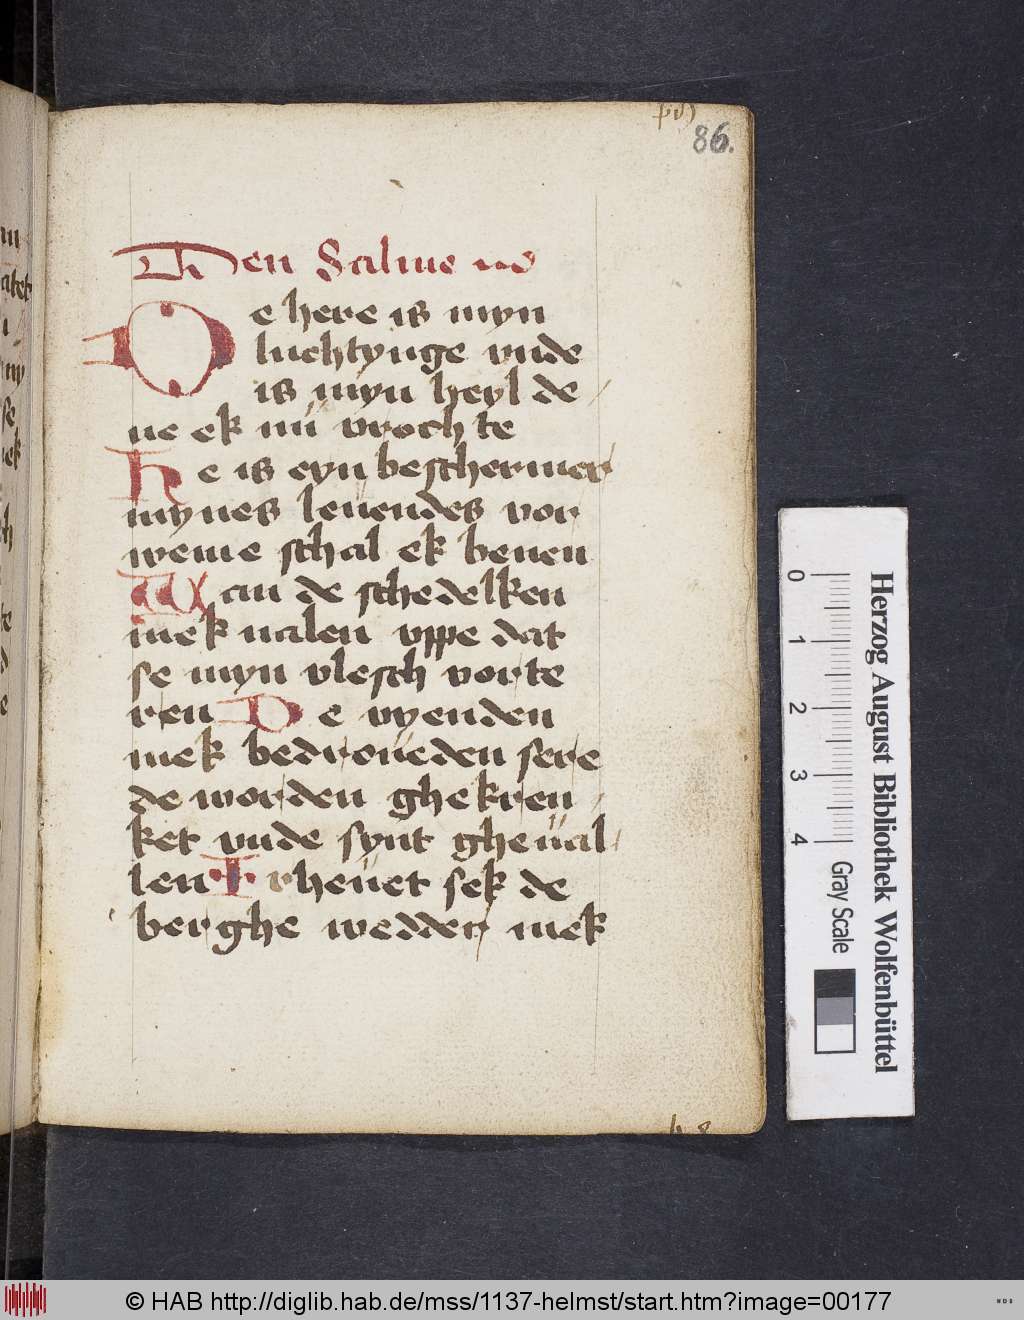 86.
Den Salme
De here is myn
luchtynge vnde
is myn heyl de
ne ek nu vrochte
He is eyn beschermer
mynes leuendes vor
weme schal ek beuen
Wan de schedelken
mek nalen vppe dat
se myn vlesch vorte
ren De vyenden
mek bedroueden sere
de worden ghekren
ket vnde synt gheual
len Irheuet sek de
berghe wedder mek
0 1 2 3 4
Gray Scale
Herzog August Bibliothek Wolfenbüttel
© HAB http://diglib.hab.de/mss/1137-helmst/start.htm?image=00177